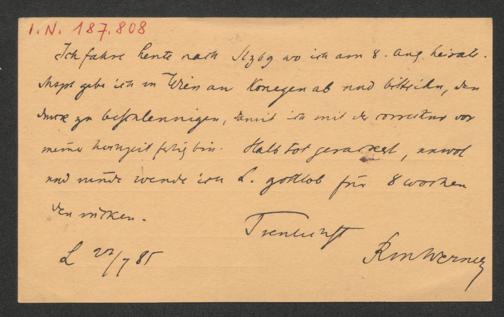 I.N. 187.808
Ich fahre heute nach Slzbg wo ich am 8. Aug. heirate.
Mscpt gebe ich in Wien an Konegen ab und bitte ihn, den
Druck zu beschleunigen, damit ich mit der Correctur vor
meiner Hochzeit fertig bin. Halb tot gerackert, unwol
und müde wende ich L. gottlob für 8 Wochen
den Rücken.
Treulichst
L 27/7 85 RMWerner